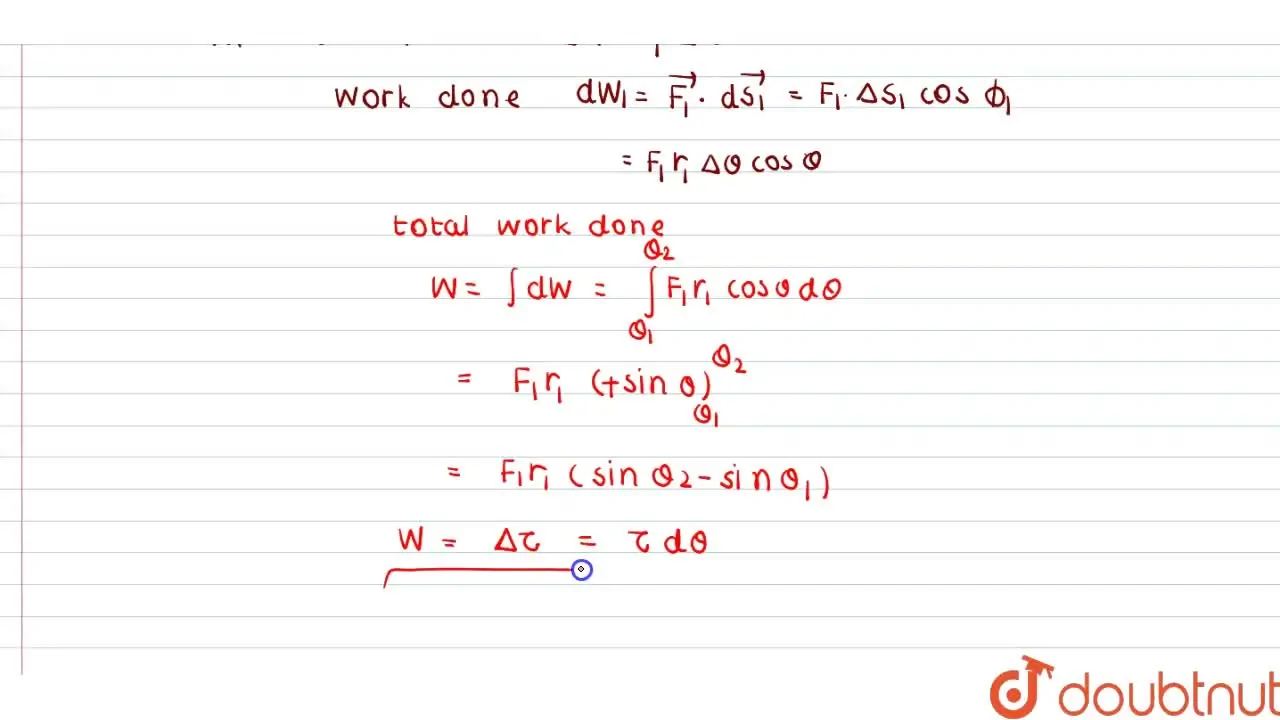 work done dW₁ = F₁⃗ . dS₁⃗ = F₁ . ΔS₁ cos ϕ₁
= F₁ r₁ Δθ cos θ
total work done
W = ∫ dW = ∫θ₁^θ₂ F₁ r₁ cos θ dθ
= F₁ r₁ (+sin θ)θ₁^θ₂
= F₁ r₁ (sin θ₂ - sin θ₁)
W = Δτ = τ dθ
doubtnut